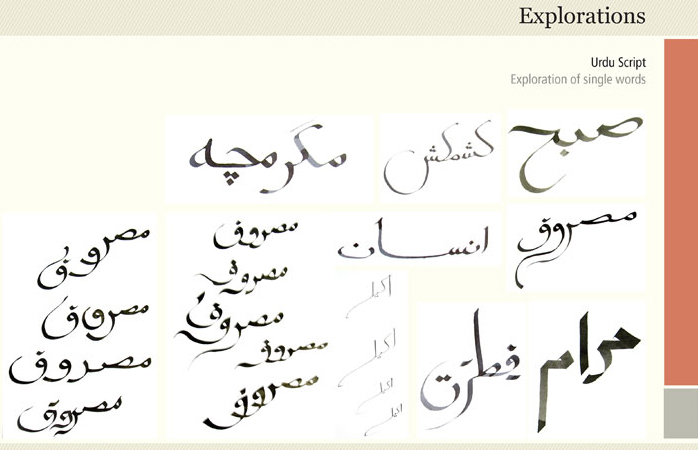 Explorations
Urdu Script
Exploration of single words
صبح
کشمکش
مگرمچہ
مصروف
انسان
مصروف
مصروف
مصروف
مصروف
مصروف
مصروف
مصروف
مصروف
مصروف
فطرت